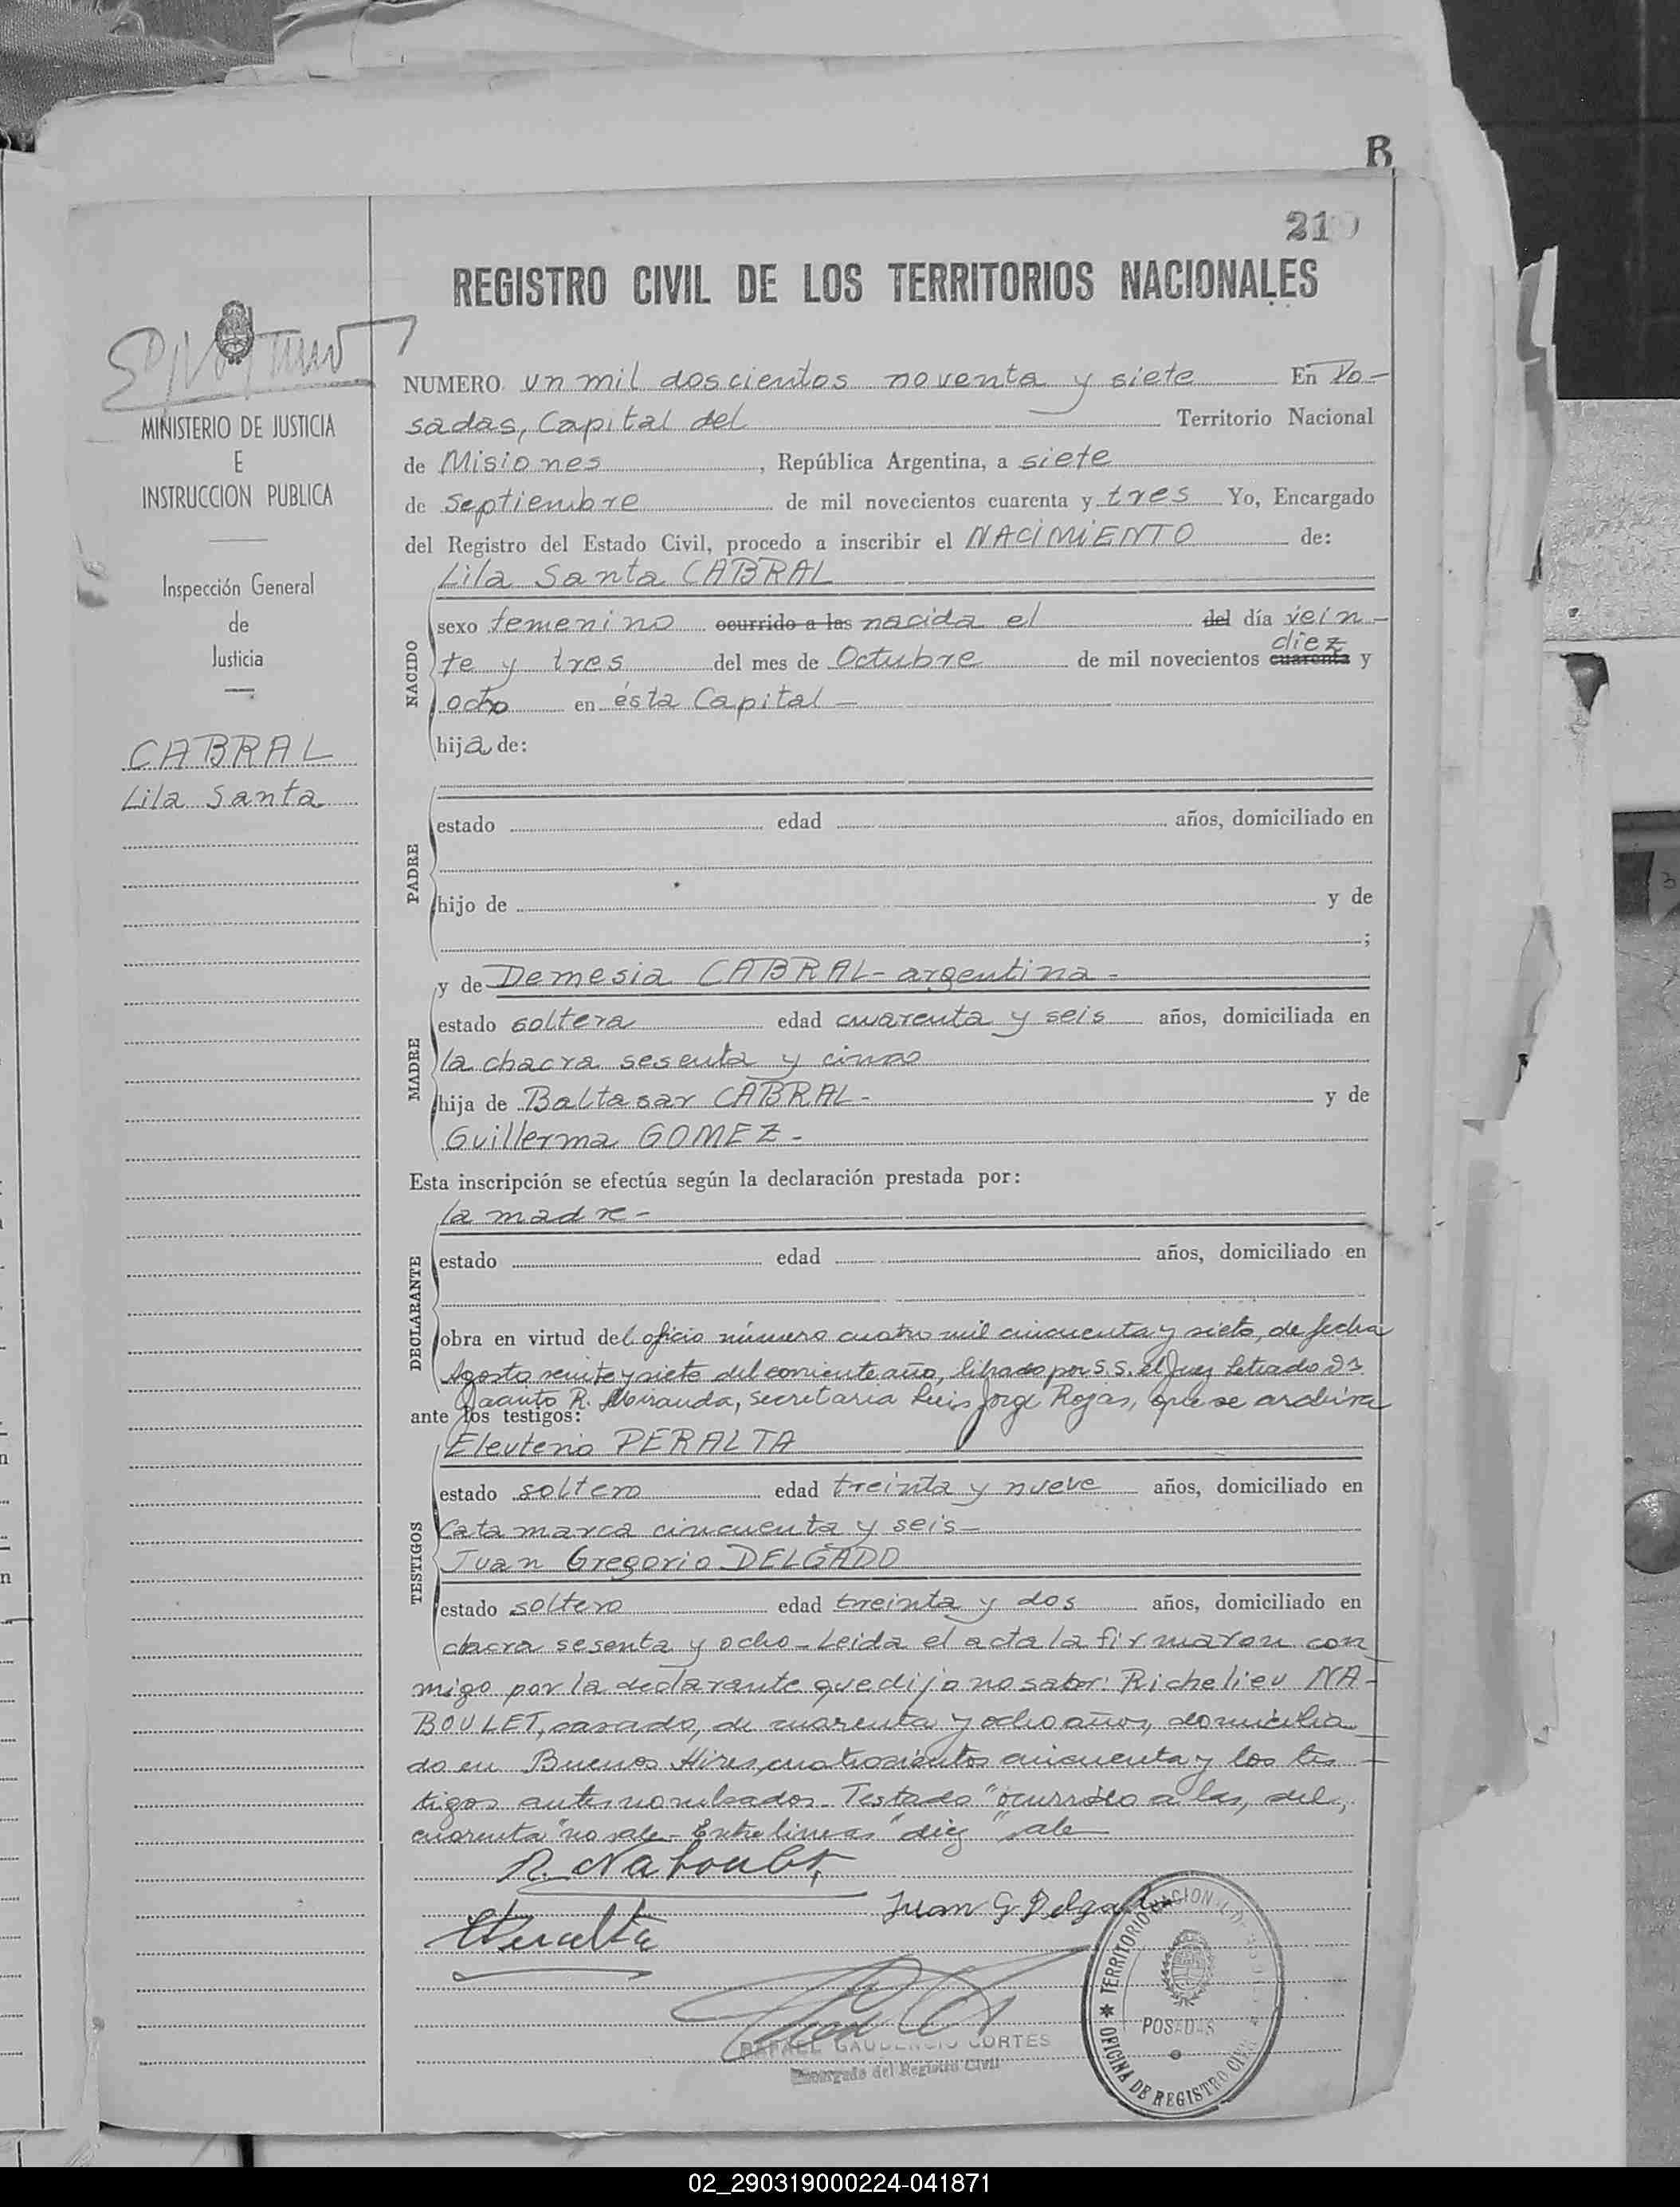 B
21
REGISTRO CIVIL DE LOS TERRITORIOS NACIONALES
MINISTERIO DE JUSTICIA
E
INSTRUCCION PUBLICA
Inspección General
de
Justicia
CABRAL
Lila Santa
NUMERO un mil doscientos noventa y siete En Po-
sadas, Capital del Territorio Nacional
de Misiones, República Argentina, a siete
de septiembre de mil novecientos cuarenta y tres Yo, Encargado
del Registro del Estado Civil, procedo a inscribir el NACIMIENTO de:
Lila Santa CABRAL
NACIDO
sexo femenino ocurrido a las nacida el del día vein-
diez
te y tres del mes de Octubre de mil novecientos cuarenta y
ocho en ésta Capital -
hija de:
PADRE
estado edad años, domiciliado en
hijo de y de
;
MADRE
y de Demesia CABRAL - argentina -
estado soltera edad cuarenta y seis años, domiciliada en
la chacra sesenta y cinco
hija de Baltasar CABRAL - y de
Guillerma GOMEZ -
Esta inscripción se efectúa según la declaración prestada por:
la madre -
DECLARANTE
estado edad años, domiciliado en
obra en virtud del oficio número cuatro mil cincuenta y siete, de fecha
Agosto veinte y siete del corriente año, librado por S.S. el Juez Letrado Dr
Jacinto R. Miranda, secretaria Luis Jorge Rojas, que se archiva
ante los testigos:
TESTIGOS
Eleuterio PERALTA
estado soltero edad treinta y nueve años, domiciliado en
Catamarca cincuenta y seis -
Juan Gregorio DELGADO
estado soltero edad treinta y dos años, domiciliado en
chacra sesenta y ocho - Leida el acta la firmaron con
migo por la declarante que dijo no saber: Richelieu NA-
BOULET, casado, de cuarenta y ocho años, domicilia
do en Buenos Aires cuatrocientos cincuenta y los tes
tigos antes nombrados - Testado "ocurrido a las, del,
cuarenta" no vale - Entre lineas "diez" vale
R. Naboulet
Juan G Delgado
EPeralta
RAFAEL GAUDENCIO CORTES
Encargado del Registro Civil
TERRITORIO NACIONAL DE MISIONES
POSADAS
OFICINA DE REGISTRO CIVIL
02_290319000224-041871